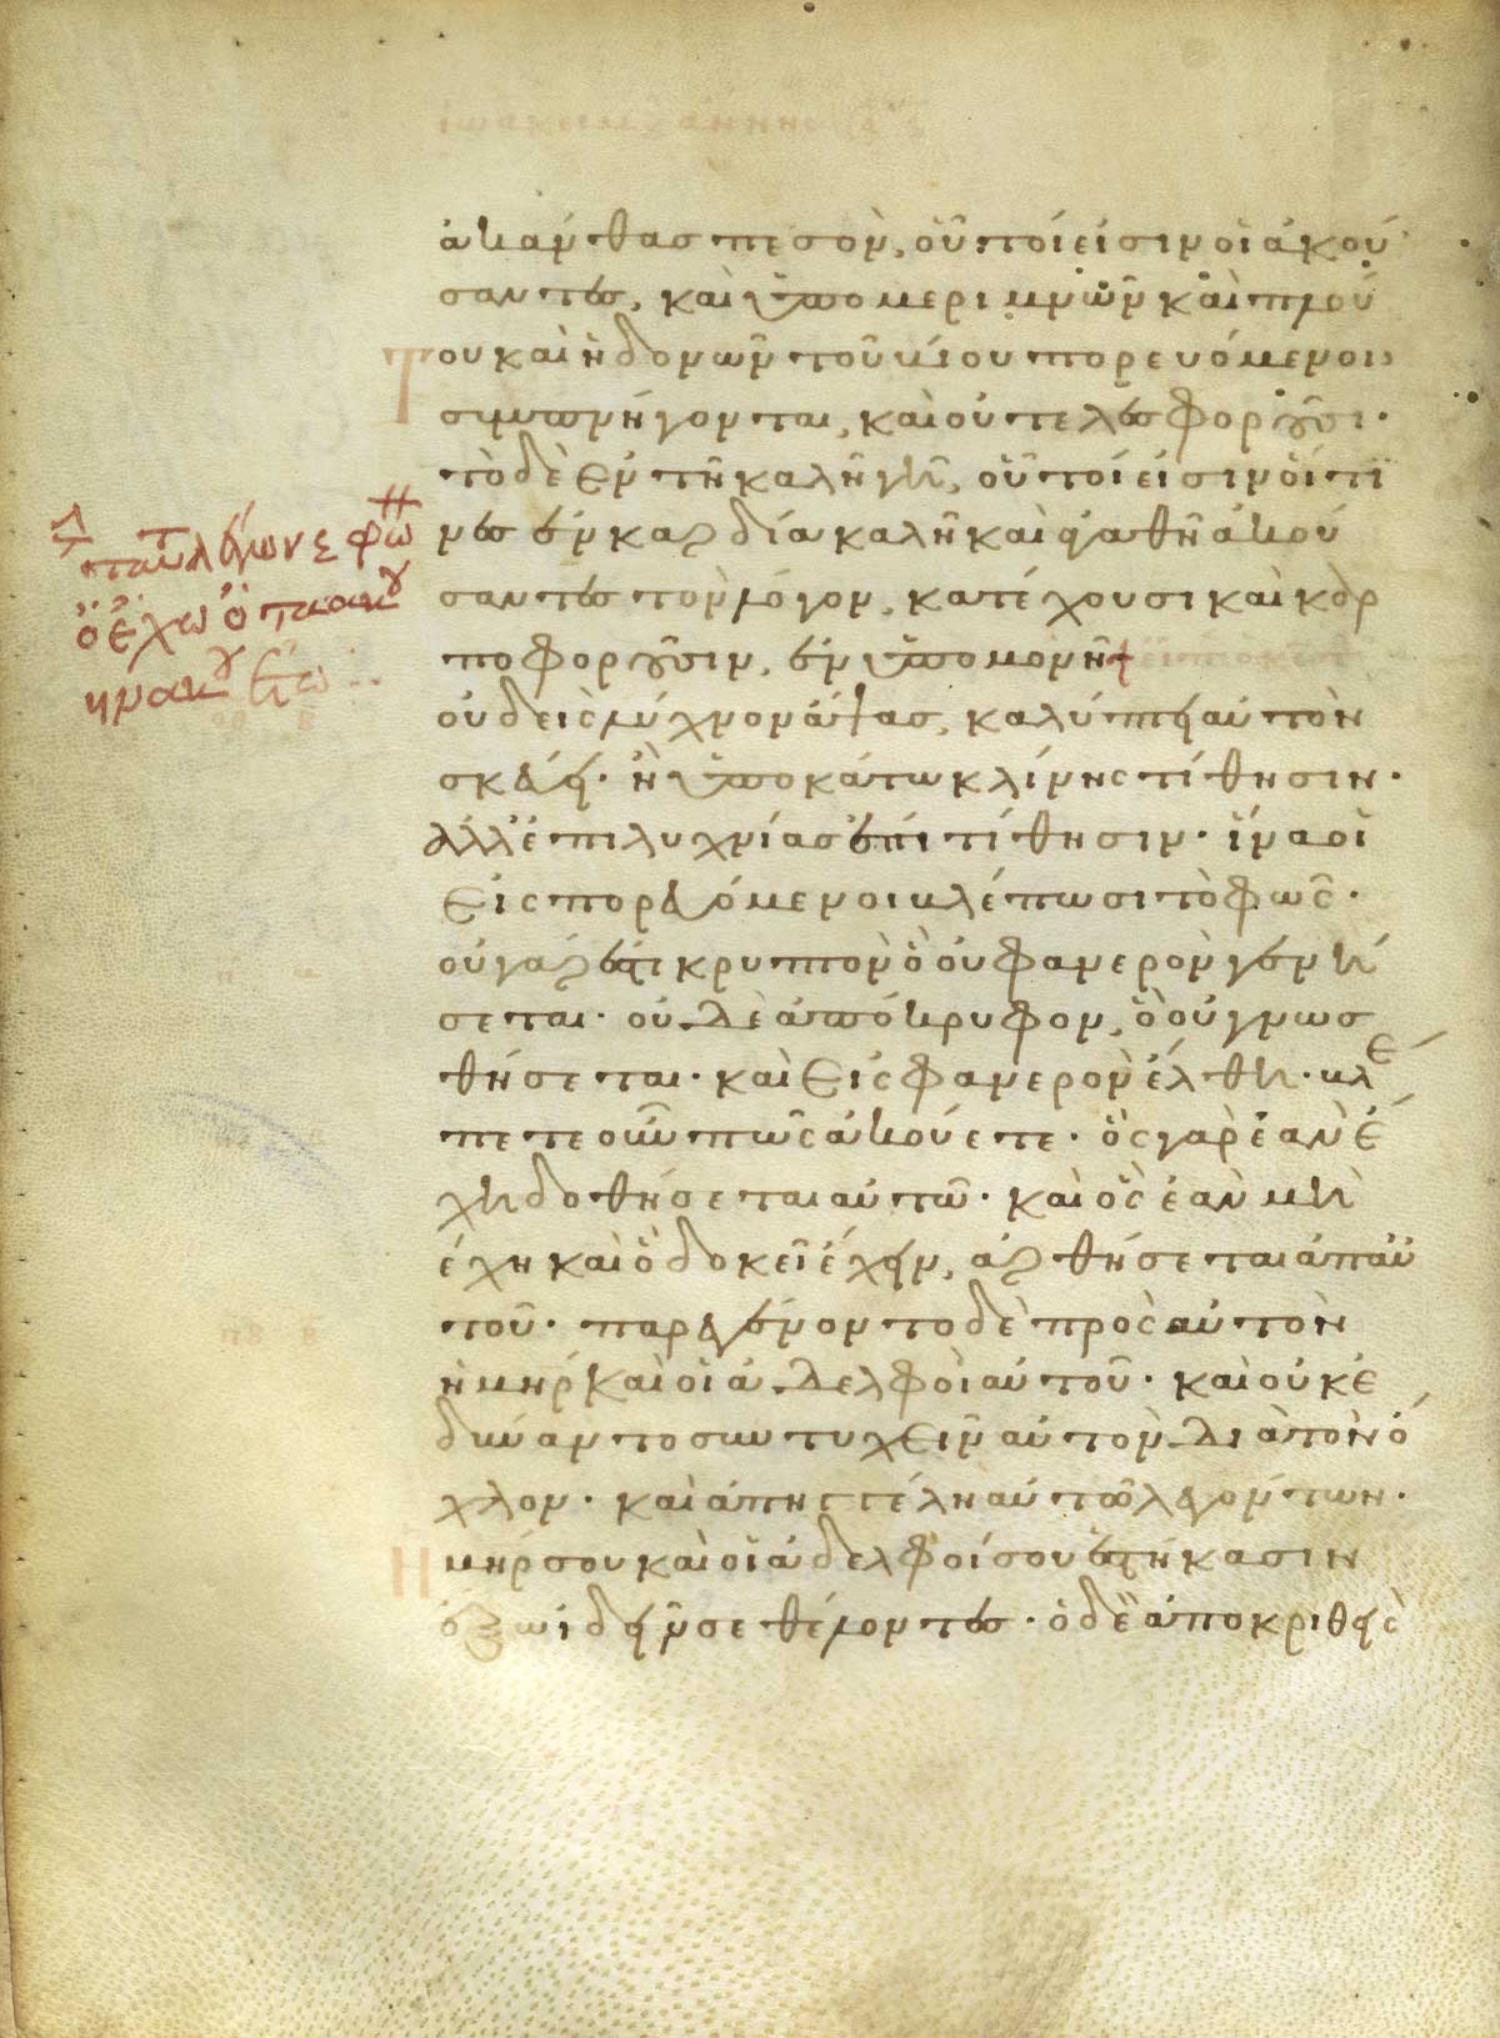 ἀκάνθας πεσὸν, οὗτοί εἰσιν οἱ ἀκού
σαντες, καὶ ὑπὸ μεριμνῶν καὶ πλού
του καὶ ἡδονῶν τοῦ βίου πορευόμενοι
συμπνήγονται, καὶ οὐ τελεσφοροῦσι·
τὸ δὲ ἐν τῆ καλῆ γῆ, οὗτοί εἰσιν οἵτι
νες ἐν καρδία καλῆ καὶ ἀγαθῆ ἀκού
σαντες τὸν λόγον, κατέχουσι καὶ καρ
ποφοροῦσιν, ἐν ὑπομονῆ
ταῦτα λέγων ἐφώ
ὁ ἔχων ὦτα ἀκού
ειν ἀκουέτω
οὐδεὶς λύχνον ἅψας, καλύπτει αὐτὸν
σκεύει· ἢ ὑποκάτω κλίνης τίθησιν·
ἀλλ' ἐπὶ λυχνίας ἐπιτίθησιν· ἵνα οἱ
εἰσπορευόμενοι βλέπωσι τὸ φῶς·
οὐ γάρ ἐστι κρυπτὸν ὃ οὐ φανερὸν γενή
σεται· οὐδὲ ἀπόκρυφον, ὃ οὐ γνωσ
θήσεται· καὶ εἰς φανερὸν ἔλθη· βλέ
πετε οὖν πῶς ἀκούετε· ὃς γὰρ ἐὰν ἔ
χη δοθήσεται αὐτῶ· καὶ ὃς ἐὰν μὴ
ἔχη καὶ ὃ δοκεῖ ἔχειν, ἀρθήσεται ἀπ' αὐ
τοῦ· παρεγένοντο δὲ πρὸς αὐτὸν
ἡ μηρ καὶ οἱ ἀδελφοὶ αὐτοῦ· καὶ οὐκ ἐ
δύναντο συντυχεῖν αὐτὸν διὰ τὸν ὄ
χλον· καὶ ἀπηγγέλη αὐτῶ λεγόντων·
ἡ μηρ σου καὶ οἱ ἀδελφοί σου ἑστήκασιν
ἔξω ἰδεῖν σε θέλοντες· ὁ δὲ ἀποκριθεὶς